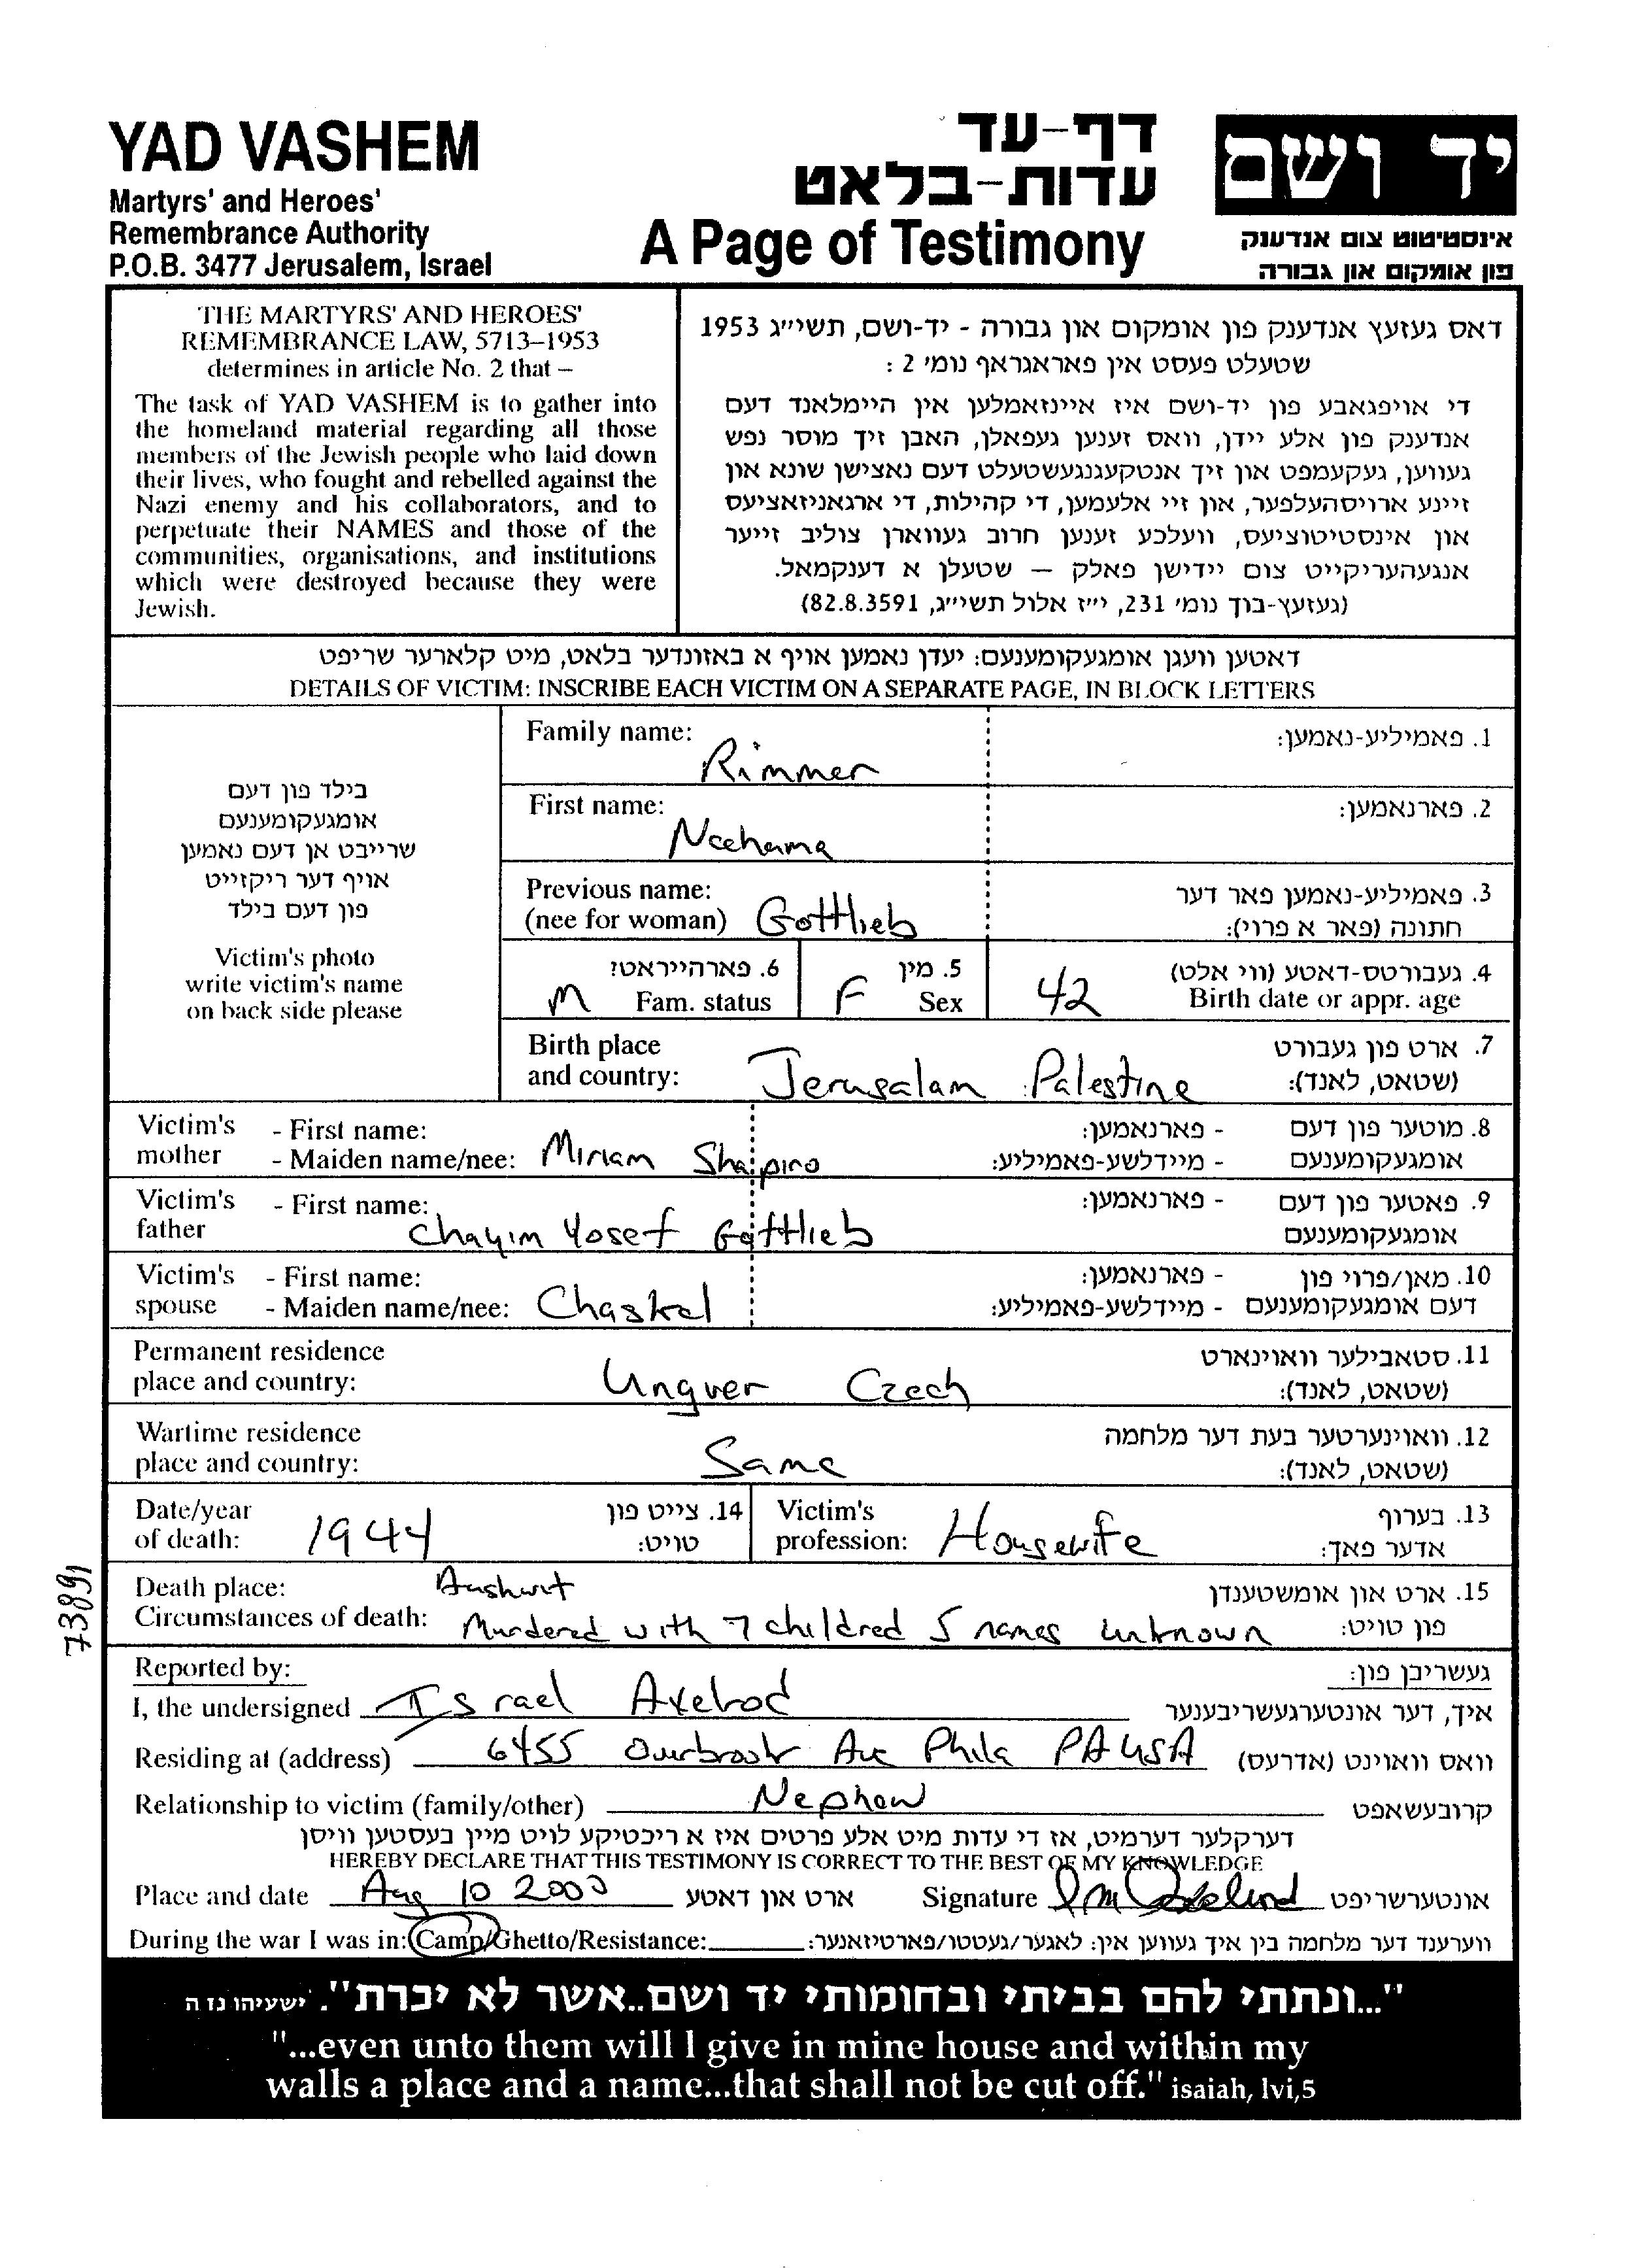 YAD VASHEM
Martyrs' and Heroes'
Remembrance Authority
P.O.B. 3477 Jerusalem, Israel
דף-עד
עדות-בלאט
A Page of Testimony
יד ושם
אינסטיטוט צום אנדענק
פון אומקום און גבורה
THE MARTYRS' AND HEROES'
REMEMBRANCE LAW, 5713–1953
determines in article No. 2 that –
The task of YAD VASHEM is to gather into
the homeland material regarding all those
members of the Jewish people who laid down
their lives, who fought and rebelled against the
Nazi enemy and his collaborators, and to
perpetuate their NAMES and those of the
communities, organisations, and institutions
which were destroyed because they were
Jewish.
דאס געזעץ אנדענק פון אומקום און גבורה - יד-ושם, תשי״ג 1953
שטעלט פעסט אין פאראגראף נומ׳ 2 :
די אויפגאבע פון יד-ושם איז איינזאמלען אין היימלאנד דעם
אנדענק פון אלע יידן, וואס זענען געפאלן, האבן זיך מוסר נפש
געווען, געקעמפט און זיך אנטקעגנגעשטעלט דעם נאצישן שונא און
זיינע ארויסהעלפער, און זיי אלעמען, די קהילות, די ארגאניזאציעס
און אינסטיטוציעס, וועלכע זענען חרוב געווארן צוליב זייער
אנגעהעריקייט צום יידישן פאלק — שטעלן א דענקמאל.
(געזעץ-בוך נומ׳ 231, י״ז אלול תשי״ג, 82.8.3591)
דאטען וועגן אומגעקומענעם: יעדן נאמען אויף א באזונדער בלאט, מיט קלארער שריפט
DETAILS OF VICTIM: INSCRIBE EACH VICTIM ON A SEPARATE PAGE, IN BLOCK LETTERS
בילד פון דעם
אומגעקומענעם
שרייבט אן דעם נאמען
אויף דער ריקזייט
פון דעם בילד
Victim's photo
write victim's name
on back side please
Family name: Rimmer 1. פאמיליע-נאמען:
First name: Nechama 2. פארנאמען:
Previous name: 3. פאמיליע-נאמען פאר דער
(nee for woman) Gottlieb חתונה (פאר א פרוי):
6. פארהייראט? 5. מין 4. געבורטס-דאטע (ווי אלט)
M Fam. status F Sex 42 Birth date or appr. age
Birth place 7. ארט פון געבורט
and country: Jerusalam Palestine (שטאט, לאנד):
Victim's - First name: - פארנאמען: 8. מוטער פון דעם
mother - Maiden name/nee: Miriam Shapiro - מיידלשע-פאמיליע: אומגעקומענעם
Victim's - First name: - פארנאמען: 9. פאטער פון דעם
father Chayim Yosef Gottlieb אומגעקומענעם
Victim's - First name: - פארנאמען: 10. מאן/פרוי פון
spouse - Maiden name/nee: Chaskel - מיידלשע-פאמיליע: דעם אומגעקומענעם
Permanent residence 11. סטאבילער וואוינארט
place and country: Ungver Czech (שטאט, לאנד):
Wartime residence 12. וואוינערטער בעת דער מלחמה
place and country: Same (שטאט, לאנד):
Date/year 14. צייט פון Victim's 13. בערוף
of death: 1944 טויט: profession: Housewife אדער פאך:
Death place: Aushwit 15. ארט און אומשטענדן
Circumstances of death: Murdered with 7 children 5 names unknown פון טויט:
73891
Reported by: געשריבן פון:
I, the undersigned Israel Axelrod איך, דער אונטערגעשריבענער
Residing at (address) 6455 Overbrook Ave Phila PA USA וואס וואוינט (אדרעס)
Relationship to victim (family/other) Nephew קרובעשאפט
דערקלער דערמיט, אז די עדות מיט אלע פרטים איז א ריכטיקע לויט מיין בעסטען וויסן
HEREBY DECLARE THAT THIS TESTIMONY IS CORRECT TO THE BEST OF MY KNOWLEDGE
Place and date Aug 10 2000 ארט און דאטע Signature אונטערשריפט
During the war I was in: Camp/Ghetto/Resistance: ווערענד דער מלחמה בין איך געווען אין: לאגער/געטטו/פארטיזאנער:
"...ונתתי להם בביתי ובחומותי יד ושם..אשר לא יכרת". ישעיהו נו ה
"...even unto them will I give in mine house and within my
walls a place and a name...that shall not be cut off." isaiah, lvi,5